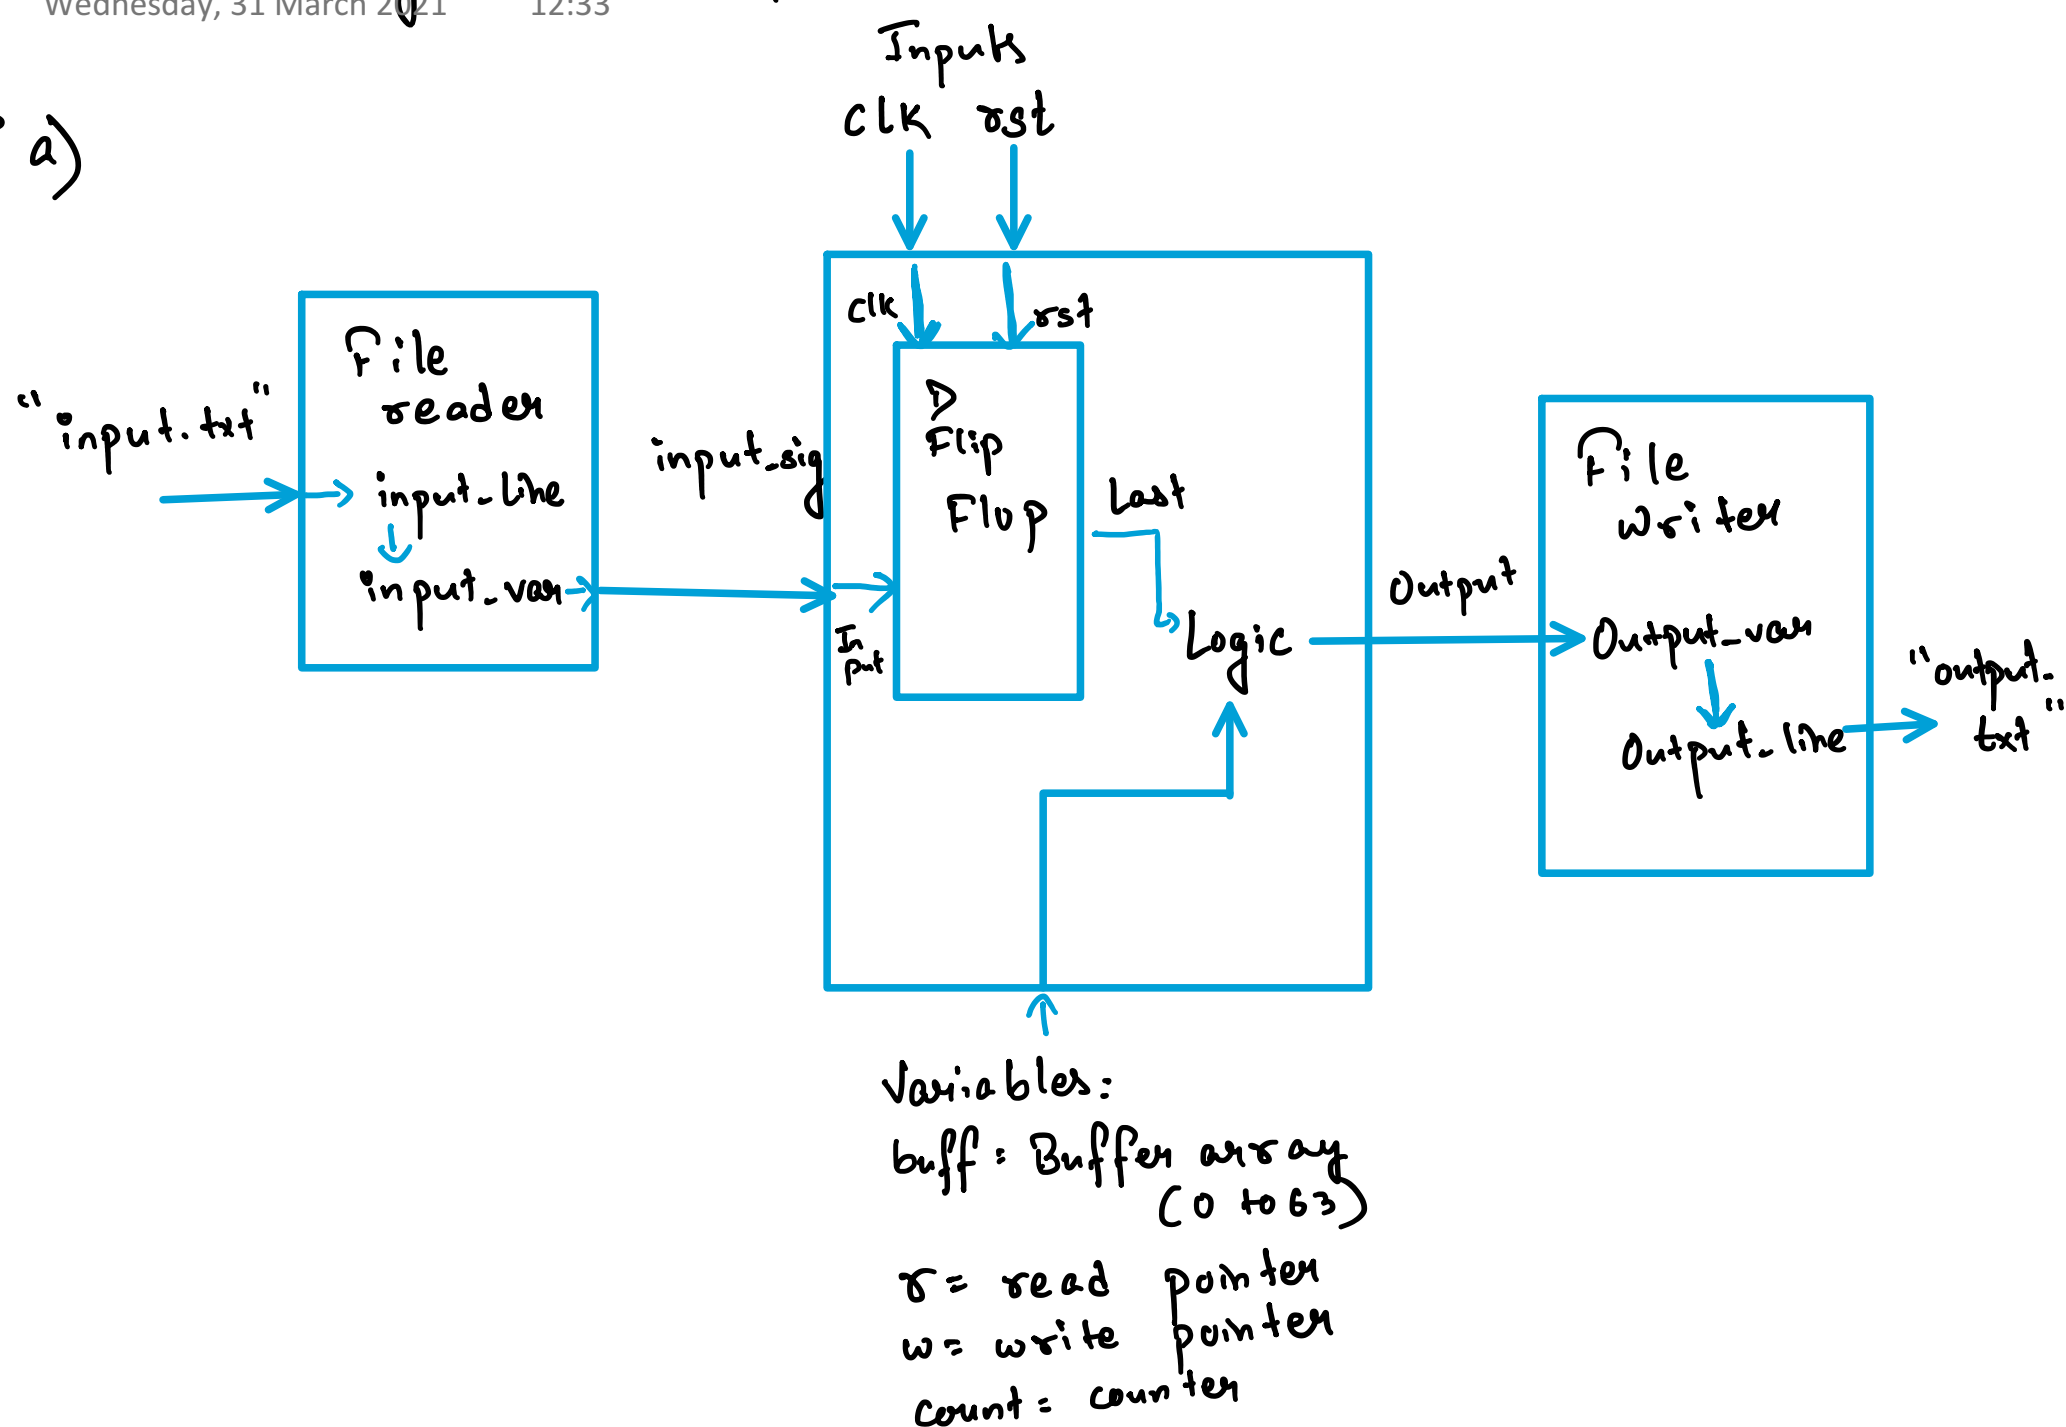 Wednesday, 31 March 2021 12:33
a)
Inputs
clk rst
clk rst
File
reader
"input.txt"
input_line
input_var
input_sig
In
put
D
Flip
Flop
Last
Logic
Output
File
writer
Output_var
Output_line
"output.
txt"
Variables:
buff: Buffer array
(0 to 63)
r= read pointer
w= write pointer
count= counter